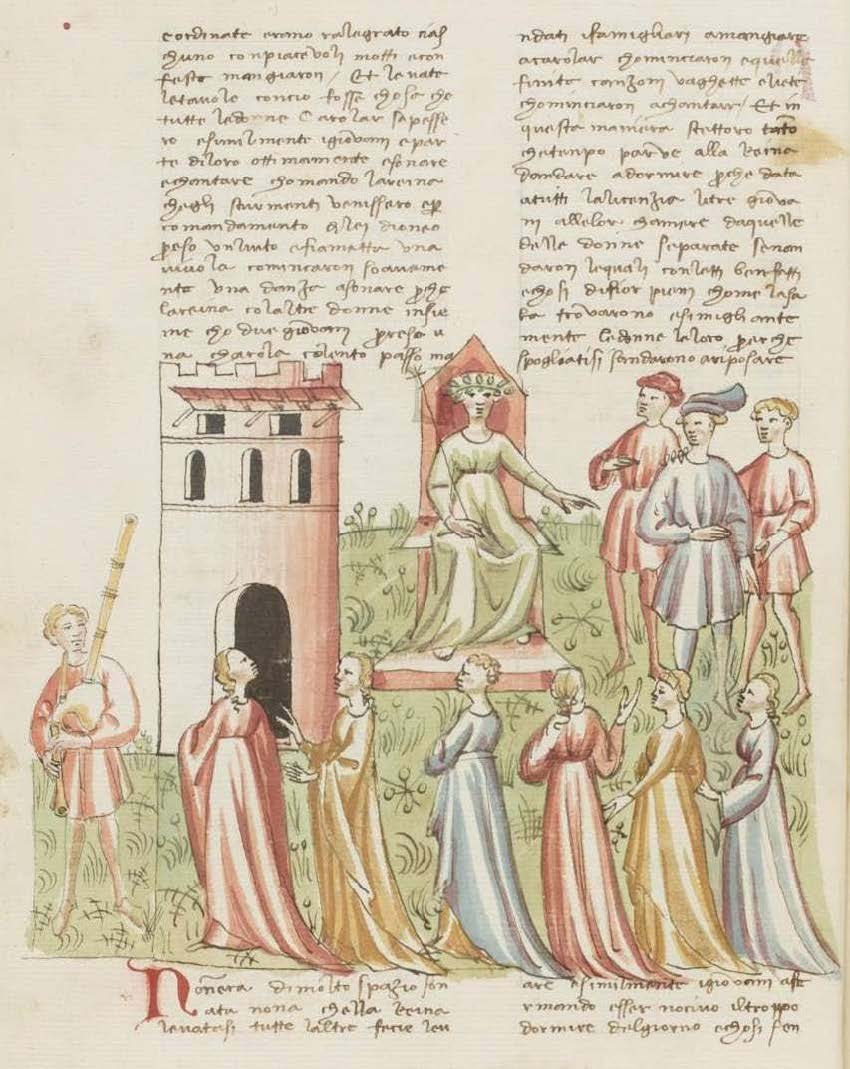 cordinate erano ralegrato cias
chuno con piacevoli motti econ
feste mangiaron / Et levate
letavole concio fosse chosa che
tutte ledonne Carolar sapesse
ro esimilmente igiovani epar
te diloro ottimamente esonare
echantare chomando lareina
chegli sturmenti venissero et p
comandamento di lei dioneo
preso unliuto efiametta una
vivuola cominciaron soavame
nte una danza asonare pche
lareina colaltre donne insie
me cho due giovani preso u
na charola cōlento passo ma
ndati ifamigliari amangiare
acarolar chominciaron equella
finita canzoni vaghette eliete
chominciaron achantare / Et in
questa maniera stettoro tāto
chetempo parve alla Reina
dandare adormire pche data
atutti lalicenzia litre giova
ni allelor chamere daquelle
delle donne separate senan
daron lequali conletti benfatti
echosi difior pieni chome lasa
la trovarono esimigliante
mente ledonne leloro perche
spogliatisi sendarono ariposare
Nōnera dimolto spazio son
ata nona chella Reina
levatasi tutte laltre fecie lev
are esimilmente igiovani affe
rmando esser nocivo iltroppo
dormire delgiorno echosi sen